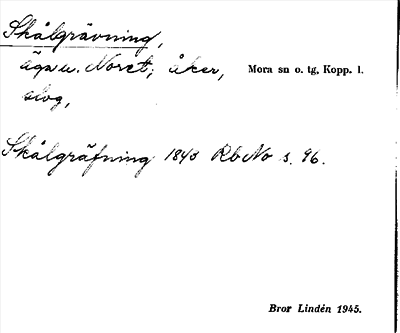 Skålgrävning,
äga u. Noret; åker, Mora sn o. tg, Kopp. l.
slog,
Skålgräfning 1843 RbNo s. 96.
Bror Lindén 1945.